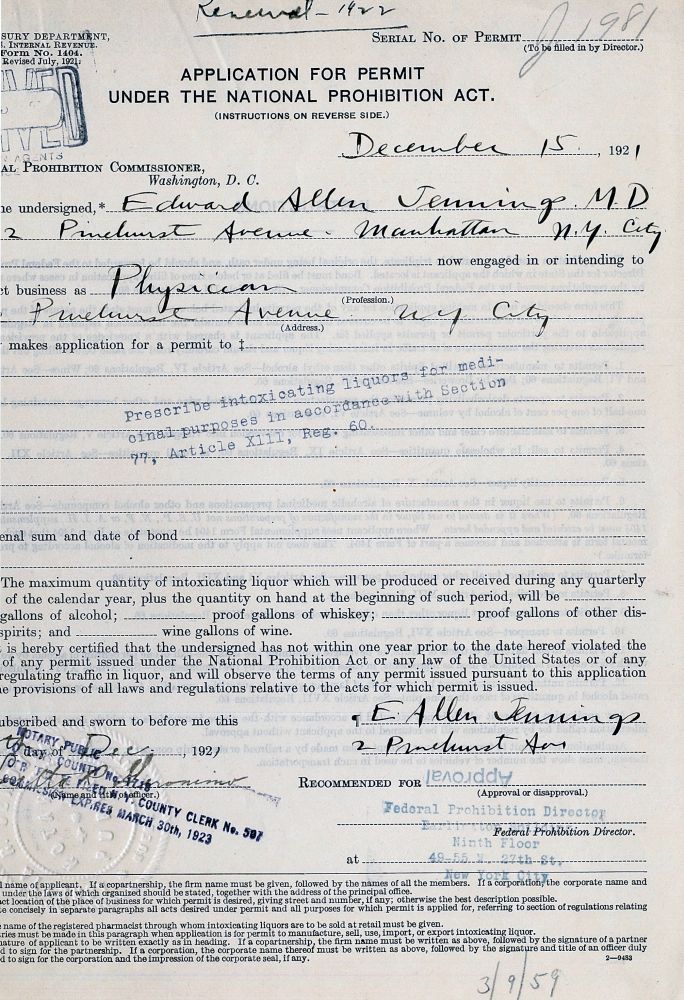 Renewal - 1922
SURY DEPARTMENT,
S. INTERNAL REVENUE.
Form No. 1404.
Revised July, 1921.
SERIAL NO. OF PERMIT J 1981
(To be filled in by Director.)
APPLICATION FOR PERMIT
UNDER THE NATIONAL PROHIBITION ACT.
(INSTRUCTIONS ON REVERSE SIDE.)
AGENTS
December 15, 1921
AL PROHIBITION COMMISSIONER,
Washington, D. C.
e undersigned,* Edward Allen Jennings. M.D
2 Pinehurst Avenue. Manhattan N.Y. City
now engaged in or intending to
ct business as Physician
(Profession.)
Pinehurst Avenue N.Y City
(Address.)
makes application for a permit to ‡
Prescribe intoxicating liquors for medi-
cinal purposes in accordance with Section
77, Article XIII, Reg. 60.
enal sum and date of bond
The maximum quantity of intoxicating liquor which will be produced or received during any quarterly
of the calendar year, plus the quantity on hand at the beginning of such period, will be
gallons of alcohol; proof gallons of whiskey; proof gallons of other dis-
spirits; and wine gallons of wine.
t is hereby certified that the undersigned has not within one year prior to the date hereof violated the
of any permit issued under the National Prohibition Act or any law of the United States or of any
regulating traffic in liquor, and will observe the terms of any permit issued pursuant to this application
e provisions of all laws and regulations relative to the acts for which permit is issued.
ubscribed and sworn to before me this
E. Allen Jennings
2 Pinehurst Ave
day of Dec, 1921
NOTARY PUBLIC
COUNTY No.
N.Y. COUNTY CLERK No. 597
EXPIRES MARCH 30th, 1923
(Name and title of officer.)
RECOMMENDED FOR Approval
(Approval or disapproval.)
Federal Prohibition Director
Federal Prohibition Director.
Ninth Floor
at 49-55 W. 27th St.
New York City
l name of applicant. If a copartnership, the firm name must be given, followed by the names of all the members. If a corporation, the corporate name and
under the laws of which organized should be stated, together with the address of the principal office.
ct location of the place of business for which permit is desired, giving street and number, if any; otherwise the best description possible.
te concisely in separate paragraphs all acts desired under permit and all purposes for which permit is applied for, referring to section of regulations relating
e name of the registered pharmacist through whom intoxicating liquors are to be sold at retail must be given.
ries must be made in this paragraph when application is for permit to manufacture, sell, use, import, or export intoxicating liquor.
nature of applicant to be written exactly as in heading. If a copartnership, the firm name must be written as above, followed by the signature of a partner
d to sign for the partnership. If a corporation, the corporate name thereof must be written as above, followed by the signature and title of an officer duly
d to sign for the corporation and the impression of the corporate seal, if any.
2—9433
3/9/59